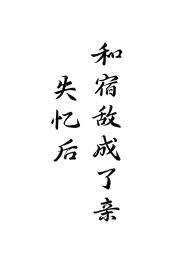 失忆后
和宿敌成了亲